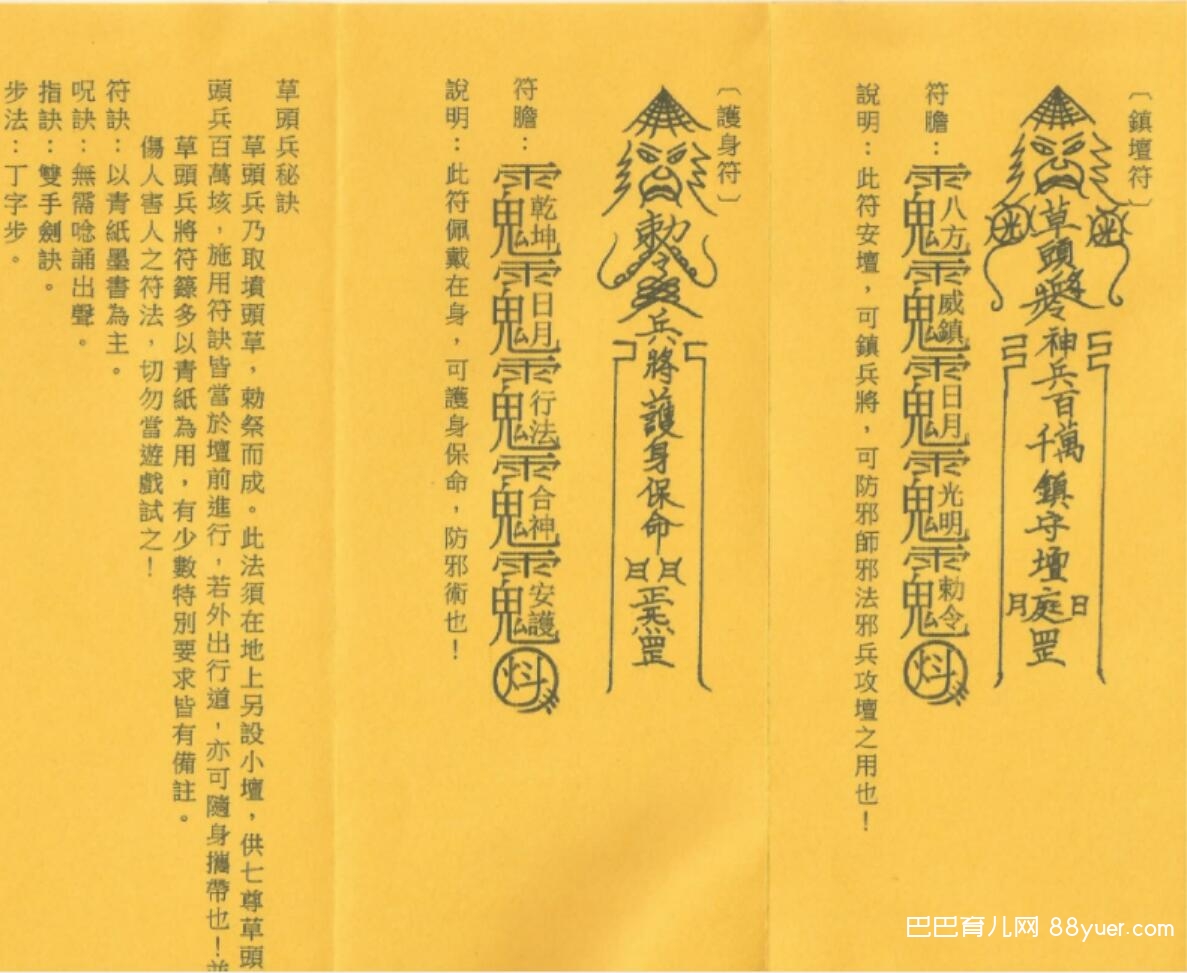 〔鎮壇符〕
草頭將令神兵百萬千鎮守壇庭罡
日月
符膽：
八方威鎮日月光明勅令
說明：此符安壇，可鎮兵將，可防邪師邪法邪兵攻壇之用也！
〔護身符〕
勅令
兵將護身保命
日月
正罡
符膽：
乾坤日月行法合神安護
說明：此符佩戴在身，可護身保命，防邪術也！
草頭兵秘訣
草頭兵乃取墳頭草，勅祭而成。此法須在地上另設小壇，供七尊草頭
頭兵百萬垓，施用符訣皆當於壇前進行，若外出行道，亦可隨身攜帶也！並
草頭兵將符籙多以青紙為用，有少數特別要求皆有備註。
傷人害人之符法，切勿當遊戲試之！
符訣：以青紙墨書為主。
呪訣：無需唸誦出聲。
指訣：雙手劍訣。
步法：丁字步。
巴巴育儿网 88yuer.com